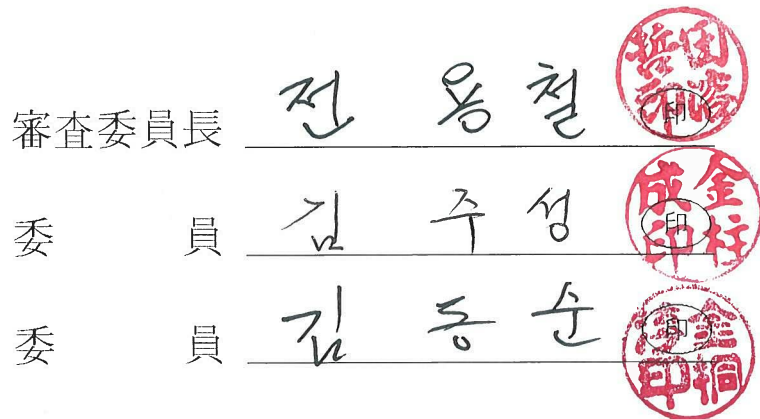 審査委員長 전 용 철 印
委 員 김 주 성 印 金柱成印
委 員 김 동 순 印